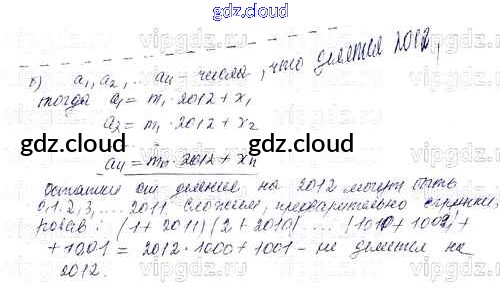 gdz.cloud
б) a₁, a₂, ... aₙ - числа, что делятся 2012,
тогда a₁ = m₁ · 2012 + x₁
a₂ = m₁ · 2012 + x₂
gdz.cloud gdz.cloud
...
aₙ = mₙ · 2012 + xₙ
Остатки от деления на 2012 могут быть
0, 1, 2, 3, .... 2011. Сложим, предварительно сгруппи,
ровав: (1 + 2011)(2 + 2010) .... (1010 + 1002) +
+ 1001 = 2012 · 1000 + 1001 - не делится на
2012.